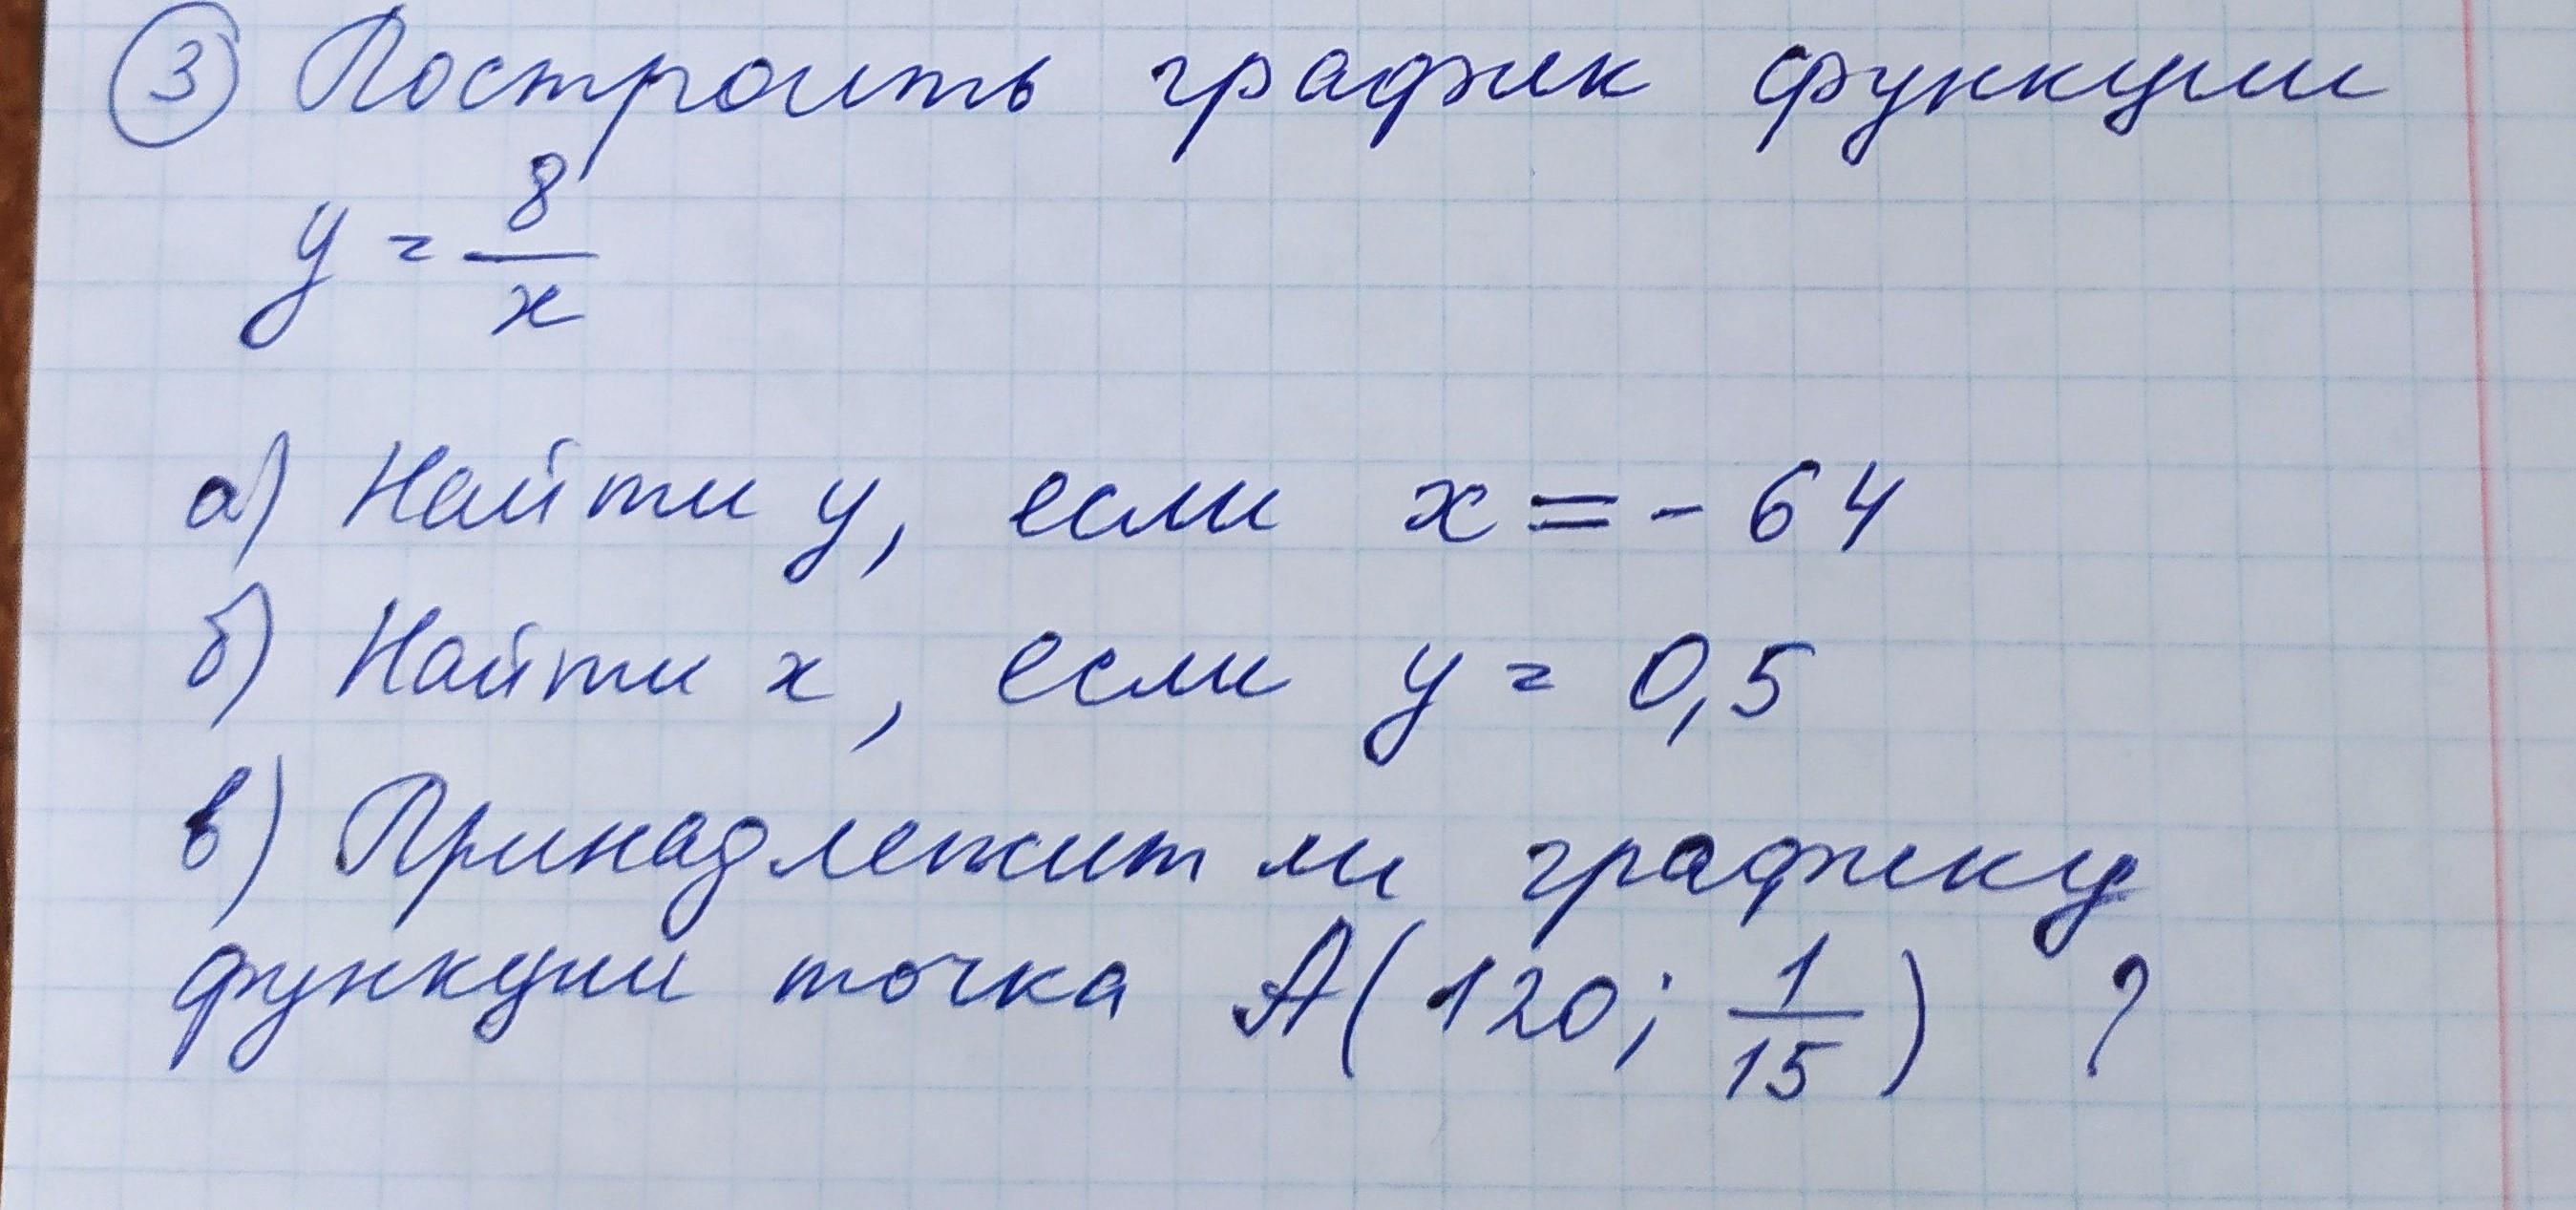 ③ Построить график функции
y = 8/x
а) Найти y, если x = - 64
б) Найти x, если y = 0,5
в) Принадлежит ли графику
функции точка A(120; 1/15) ?